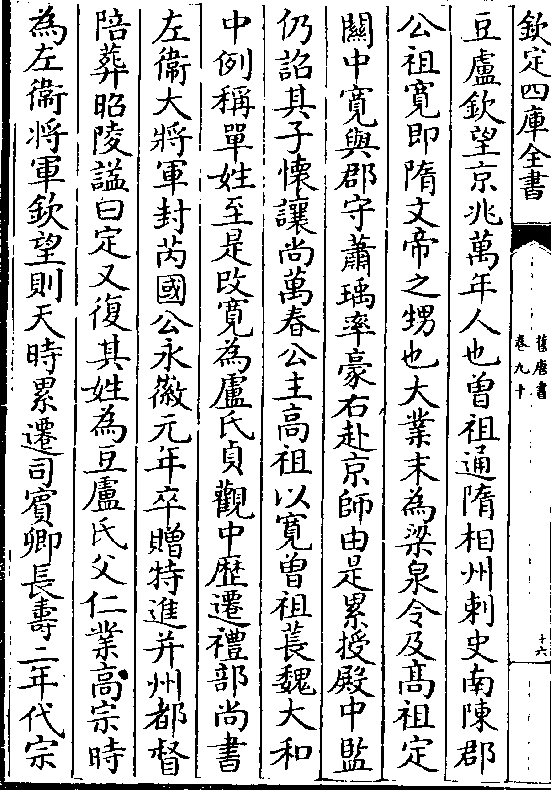 欽定四庫全書
舊唐書
卷九十
十六
豆盧欽望京兆萬年人也曾祖通隋相州刺史南陳郡
公祖寛即隋文帝之甥也大業末為梁泉令及髙祖定
關中寛與郡守蕭瑀率豪右赴京師由是累授殿中監
仍詔其子懐讓尚萬春公主高祖以寛曾祖萇魏大和
中例稱單姓至是改寛為盧氏貞觀中歴遷禮部尚書
左衞大將軍封芮國公永徽元年卒贈特進并州都督
陪葬昭陵諡曰定又復其姓為豆盧氏父仁業高宗時
為左衞將軍欽望則天時累遷司賓卿長壽二年代宗